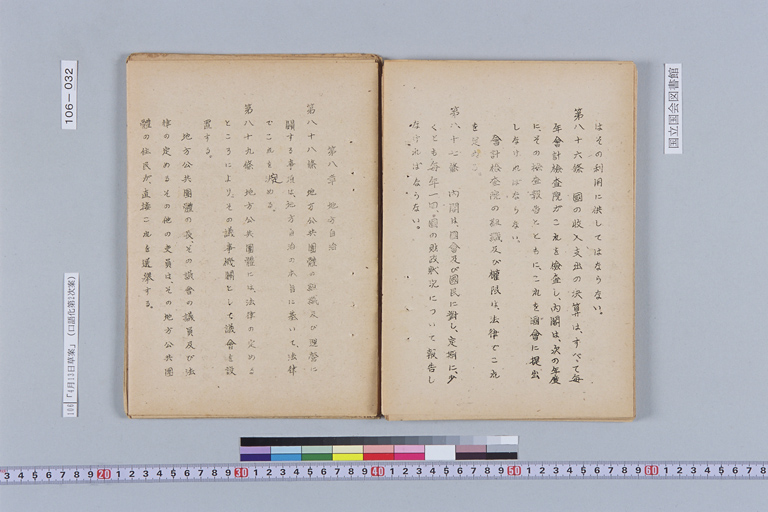 はその利用に供してはならない。
第八十六條　國の收入支出の決算は、すべて毎
年會計檢査院がこれを檢査し、内閣は、次の年度
に、その檢査報告とともに、これを國會に提出
しなければならない。
會計檢査院の組織及び權限は、法律でこれ
を定める。
第八十七條　内閣は、國會及び國民に對し、定期に、少
くとも毎年一回、國の財政狀況について報告し
なければならない。
第八章　地方自治
第八十八條　地方公共團體の組織及び運營に
關する事項は、地方自治の本旨に基いて、法律
でこれを定める。
第八十九條　地方公共團體には、法律の定める
ところにより、その議事機關として議會を設
置する。
地方公共團體の長、その議會の議員及び法
律の定めるその他の吏員は、その地方公共團
體の住民が直接これを選擧する。
106-032
106「4月13日草案」（口語化第2次案）
国立国会図書館
3 4 5 6 7 8 9 20 1 2 3 4 5 6 7 8 9 30 1 2 3 4 5 6 7 8 9 40 1 2 3 4 5 6 7 8 9 50 1 2 3 4 5 6 7 8 9 60 1 2 3 4 5 6 7 8